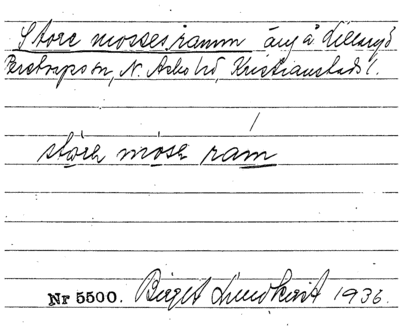 Store mosses ramm äng å Lillaryd
Perstorps sn, N. Åsbo hd, Kristianstads l.
störe móse rám
Nr 5500. Birget Lundkvist 1936.